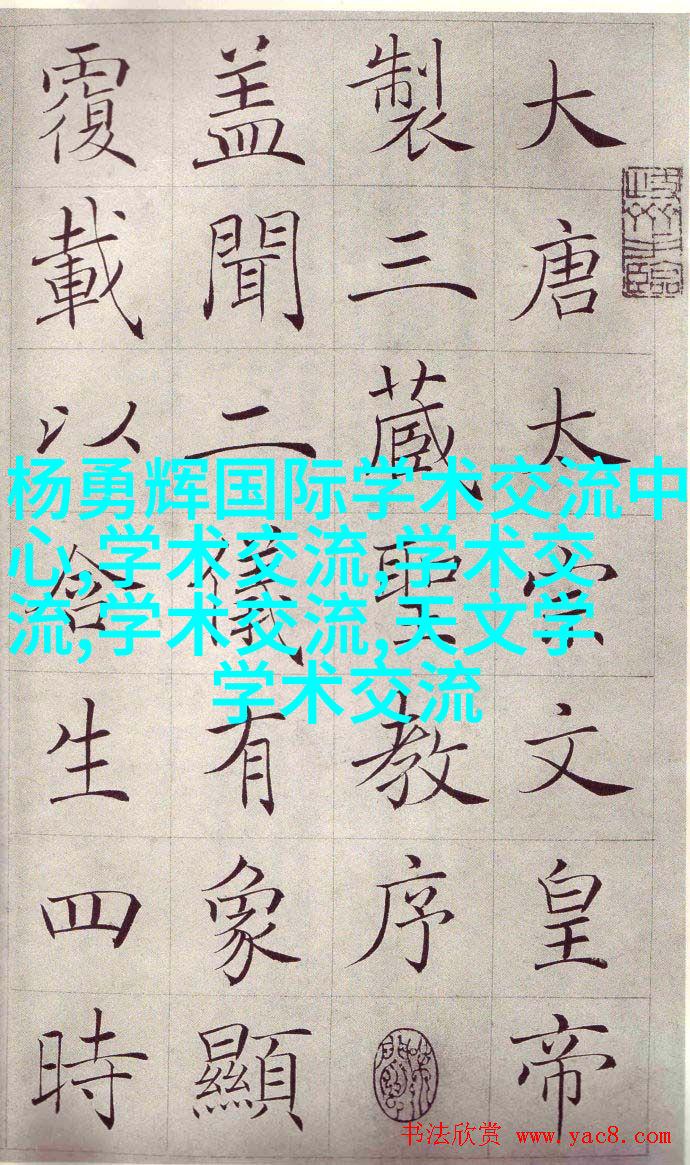 大唐太宗文皇帝
製三蔵聖教序
盖聞二儀有象顯
覆載以含生四時
杨勇辉国际学术交流中
心,学术交流,学术交
流,学术交流,天文学
学术交流
书法欣赏 www.yac8.com